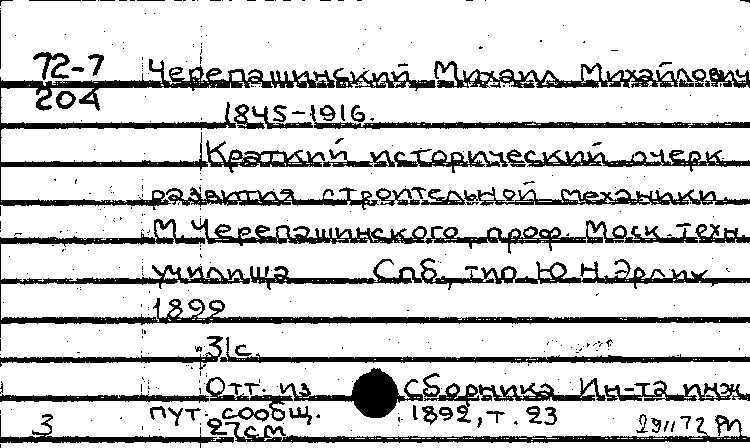 72-7 Черепашинский Михаил Михайлович
204
1845-1916.
Краткий исторический очерк
развития строительной механики
М. Черепашинского, проф. Моск. техн.
училища Спб., тип. Ю.Н. Эрлих,
1892
31с.
Отт. из сборника Ин-та инж.
пут. сообщ. 1892, т. 23
3 27см